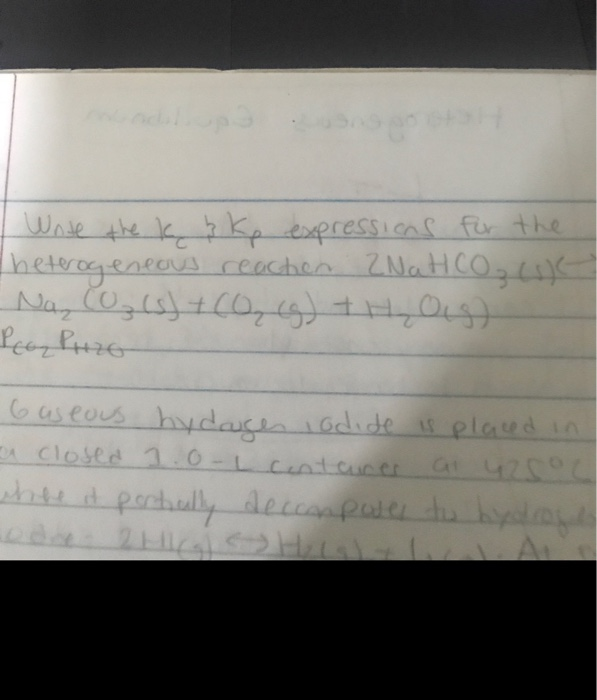 Write the Kc & Kp expressions for the
heterogeneous reaction 2NaHCO3(s)<->
Na2CO3(s) + CO2(g) + H2O(g)
PCO2 PH2O
Gaseous hydrogen iodide is placed in
a closed 1.0-L container at 425°C
where it partially decomposes to hydrogen
2HI(g) <-> H2(g) + I2(g). At